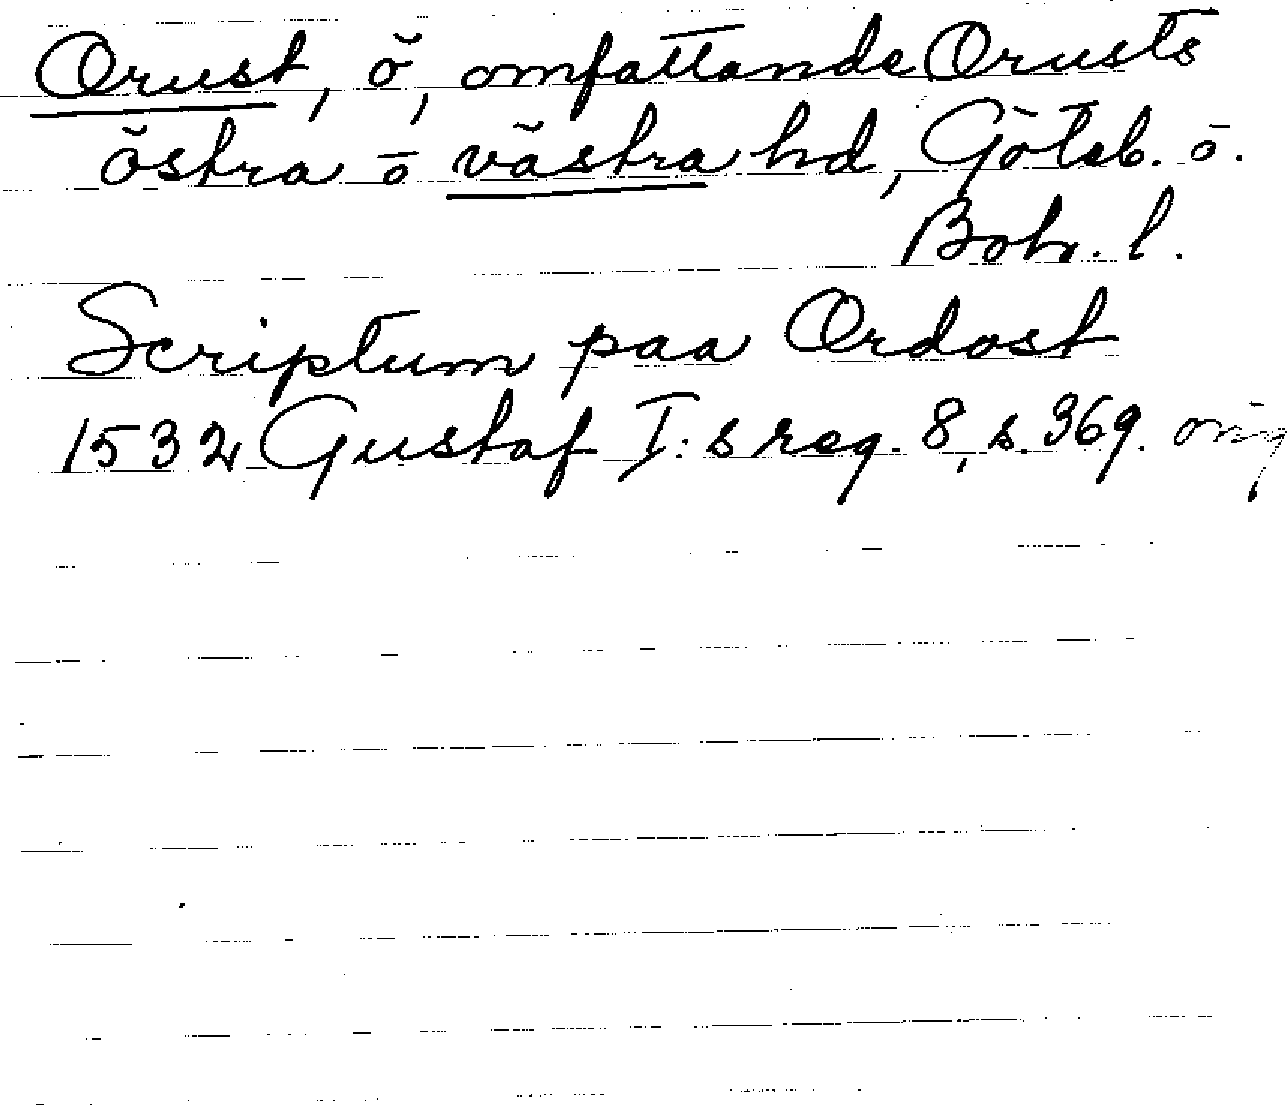 Orust, ö, omfattande Orusts
östra o västra hd, Göteb. o.
Boh. l.
Scriptum paa Ordost
1532 Gustaf I:s reg. 8, s. 369. orig